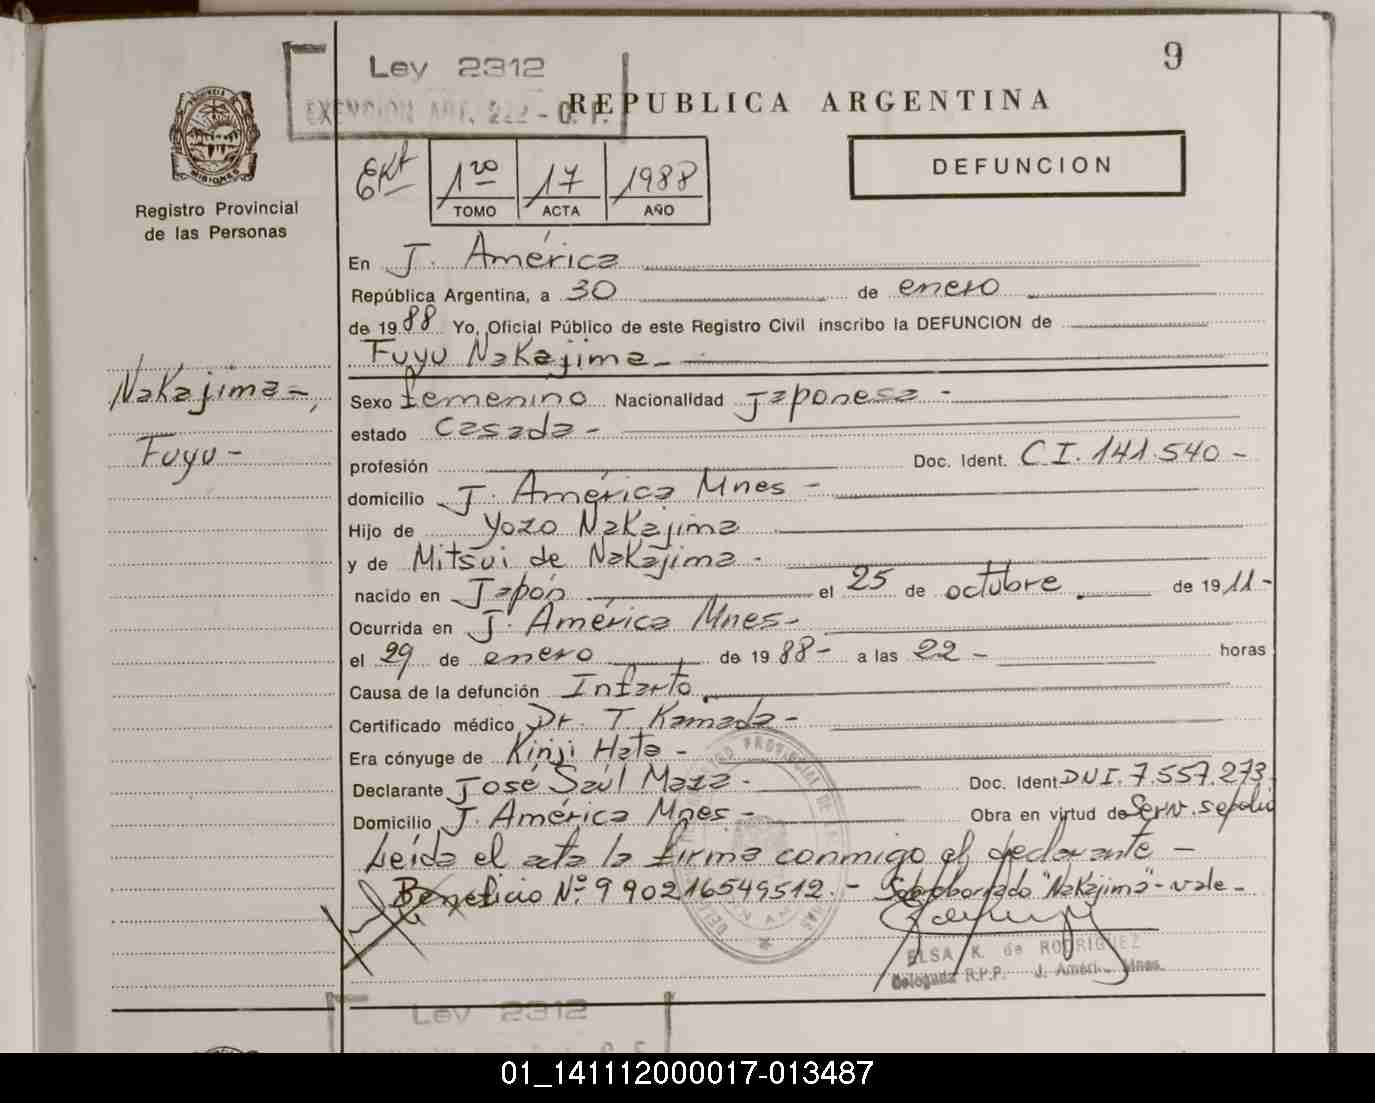 9
Ley 2312
EXENCION ART. 222 - C. F.
REPUBLICA ARGENTINA
PROVINCIA DE
MISIONES
Registro Provincial
de las Personas
DEFUNCION
1º 17 1988
TOMO ACTA AÑO
En J. América
República Argentina, a 30 de enero
de 1988 Yo, Oficial Público de este Registro Civil inscribo la DEFUNCION de
Fuyu Nakajima -
Nakajima -,
Fuyu -
Sexo femenino Nacionalidad japonesa -
estado casada -
profesión Doc. Ident. C I. 141.540 -
domicilio J. América Mnes -
Hijo de Yozo Nakajima
y de Mitsui de Nakajima -
nacido en Japón el 25 de octubre de 1911 -
Ocurrida en J. América Mnes -
el 29 de enero de 1988 - a las 22 - horas
Causa de la defunción Infarto
Certificado médico Dr. T. Kamada -
Era cónyuge de Kinji Hata -
Declarante José Saúl Maza - Doc. Ident. DNI. 7.557.273
Domicilio J. América Mnes - Obra en virtud de Serv. sepelio
Leída el acta la firma conmigo el declarante -
Beneficio Nº 990216549512. - Sobreborrado "Nakajima" - vale -
ELSA K. de RODRIGUEZ
Delegada R.P.P. J. Améri. Mnes.
Ley 2312
01_141112000017-013487